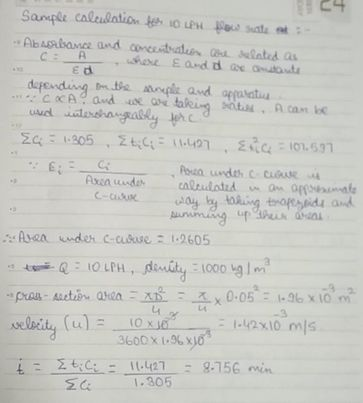 24
Sample calculation for 10 LPH flow rate :-
Absorbance and concentration are related as
C = A / Ɛd , where Ɛ and d are constants
depending on the sample and apparatus.
∵ C ∝ A, and we are taking ratios, A can be
used interchangeably for C.
ΣCi = 1.305 , ΣtiCi = 11.427 , Σti²Ci = 101.597
∵ Ei = Ci / Area under C-curve , Area under C-curve is
calculated in an approximate
way by taking trapezoids and
summing up their areas.
∴ Area under C-curve = 1.2605
Q = 10 LPH, density = 1000 kg/m³
cross-section area = πD²/4 = π/4 × 0.05² = 1.96 × 10⁻³ m²
velocity (u) = 10 × 10⁻³ / 3600 × 1.96 × 10⁻³ = 1.42 × 10⁻³ m/s
t̄ = ΣtiCi / ΣCi = 11.427 / 1.305 = 8.756 min